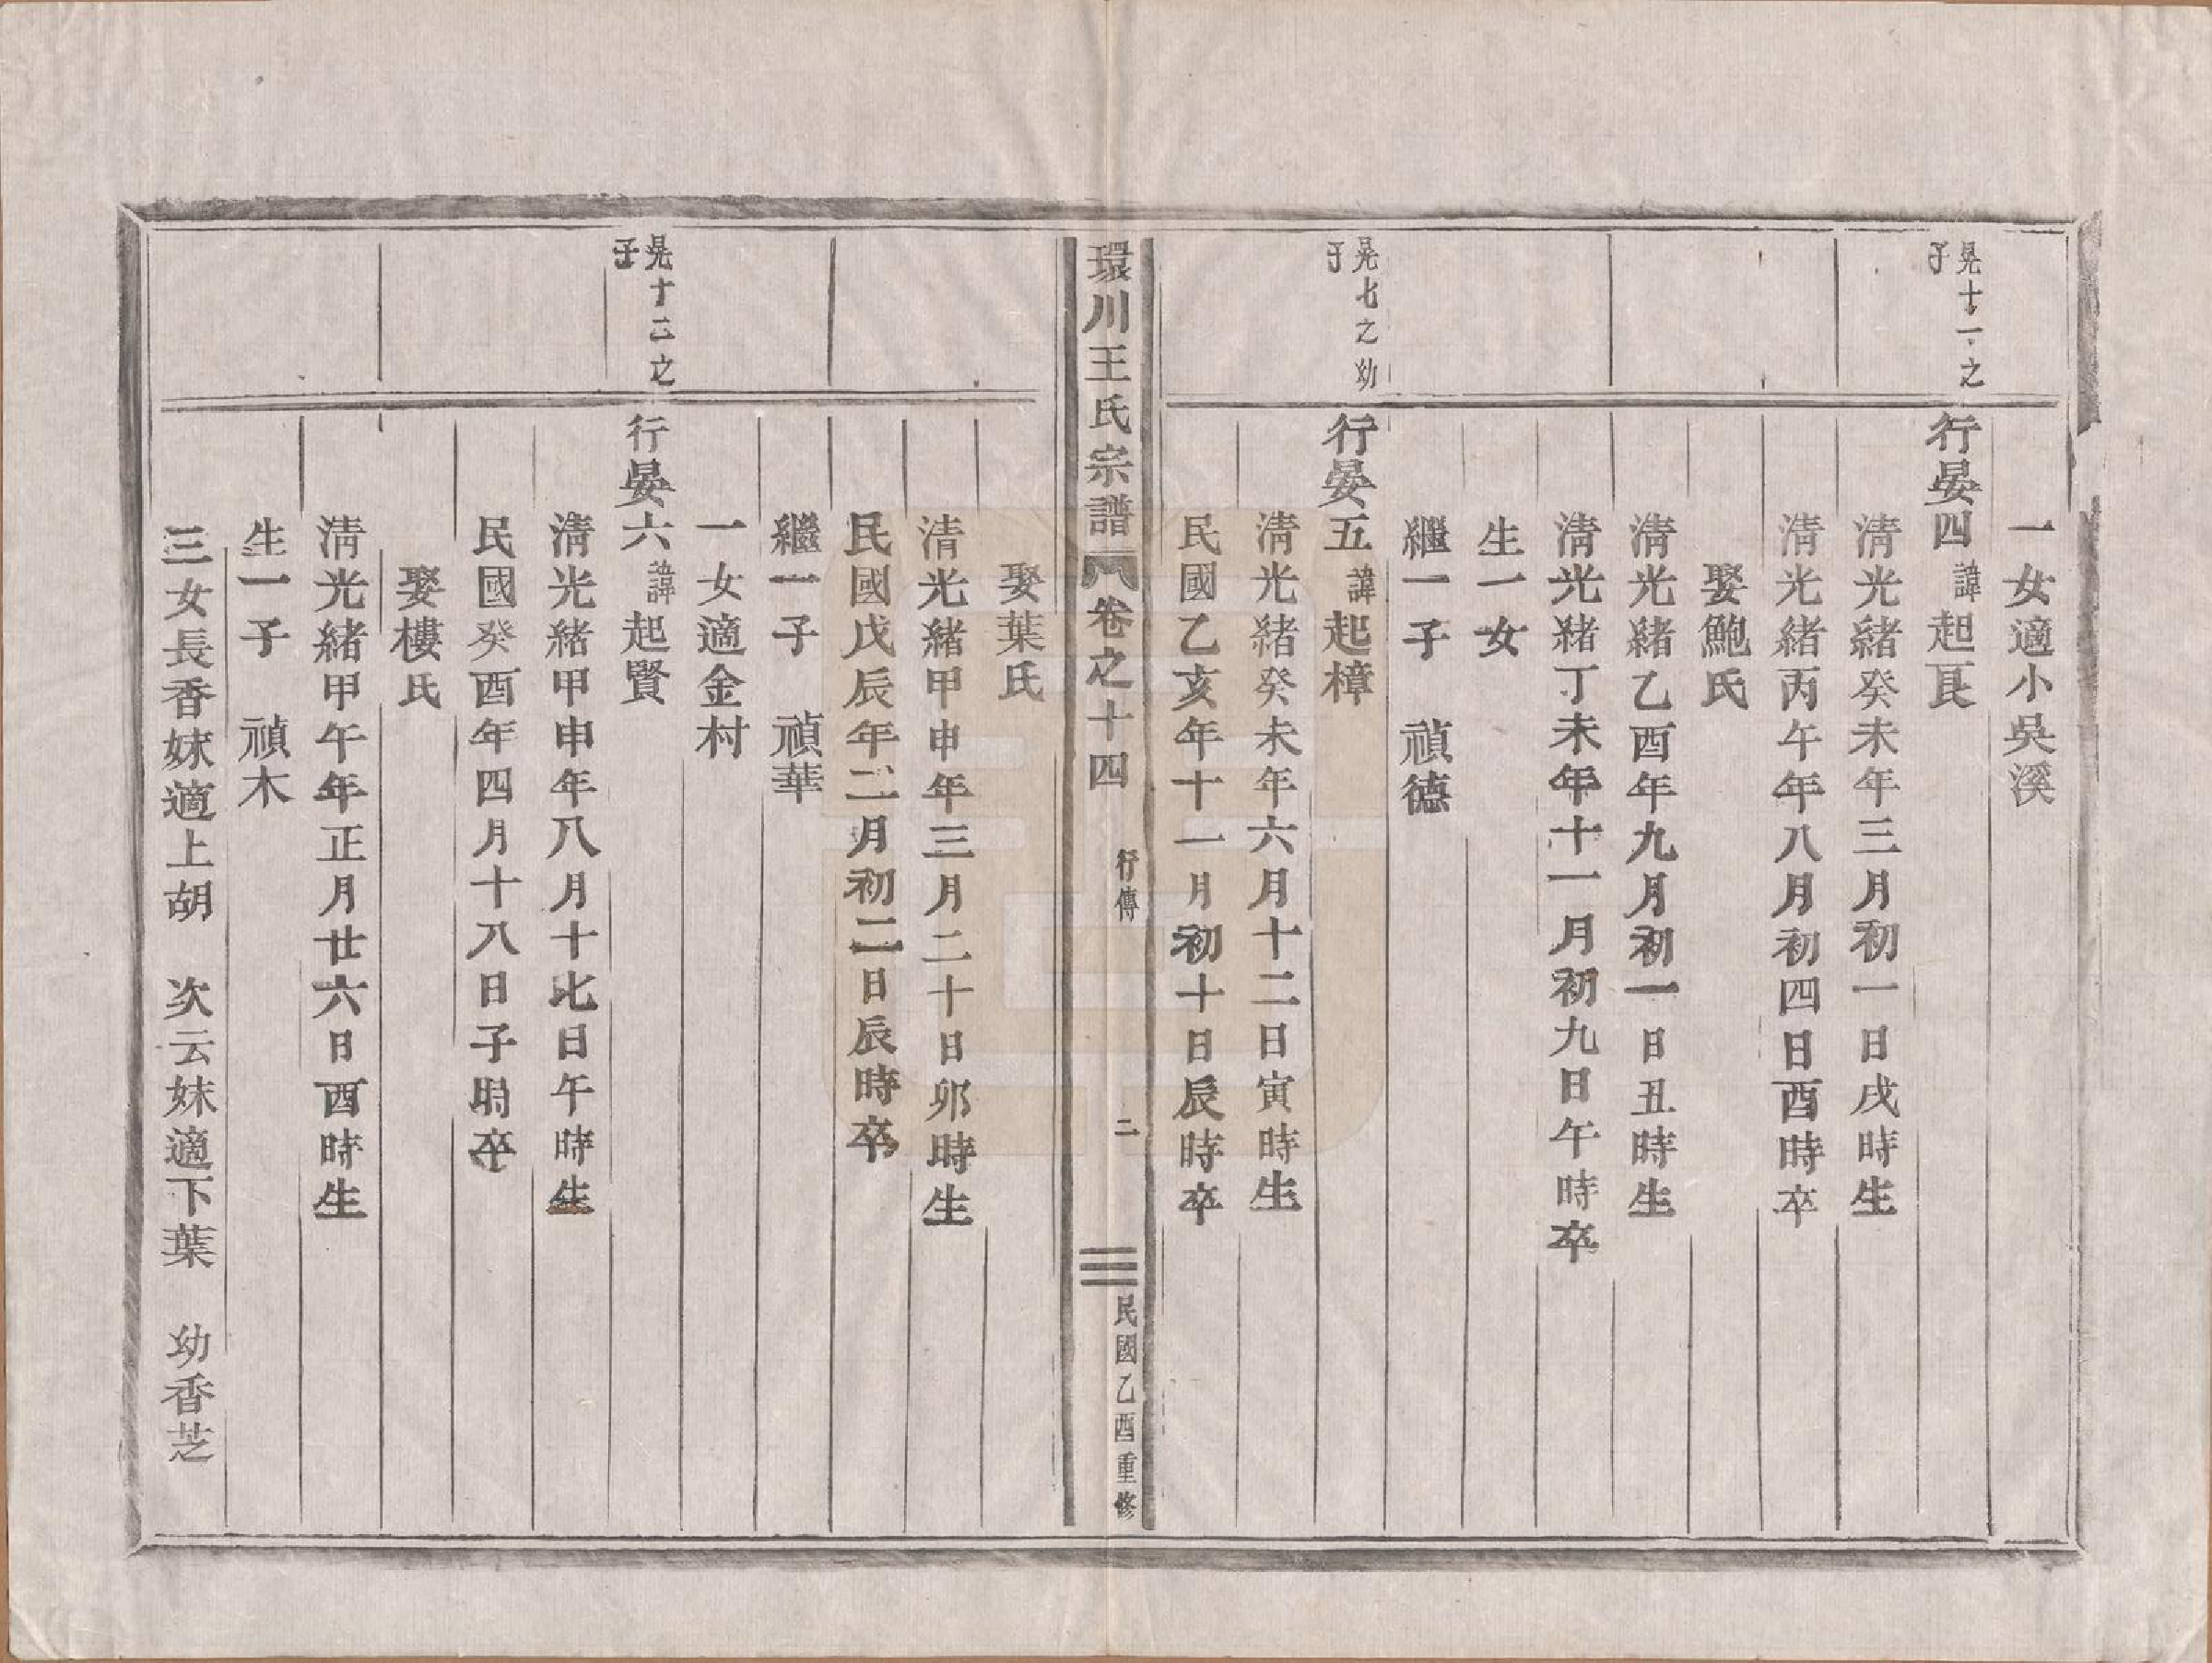 一女適小吳溪
晃十一之
子
行晏四諱起艮
淸光緒癸未年三月初一日戌時生
淸光緒丙午年八月初四日酉時卒
娶鮑氏
淸光緒乙酉年九月初一日丑時生
淸光緒丁未年十一月初九日午時卒
生一女
繼一子　禎德
晃七之幼
子
行晏五諱起樟
淸光緒癸未年六月十二日寅時生
民國乙亥年十一月初十日辰時卒
環川王氏宗譜　卷之十四　行傳　二　民國乙酉重修
娶葉氏
淸光緒甲申年三月二十日卯時生
民國戊辰年二月初二日辰時卒
繼一子　禎華
一女適金村
晃十二之
子
行晏六諱起賢
淸光緒甲申年八月十七日午時生
民國癸酉年四月十八日子時卒
娶樓氏
淸光緒甲午年正月廿六日酉時生
生一子　禎木
三女長香妹適上胡　次云妹適下葉　幼香芝